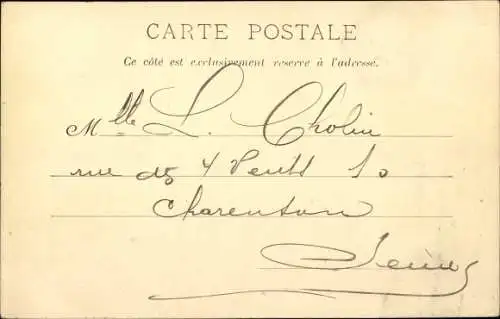 CARTE POSTALE
Ce côté est exclusivement reservé à l'adresse.
Mlle L. Cholin
rue des 4 Vents 10
Charenton
Seine